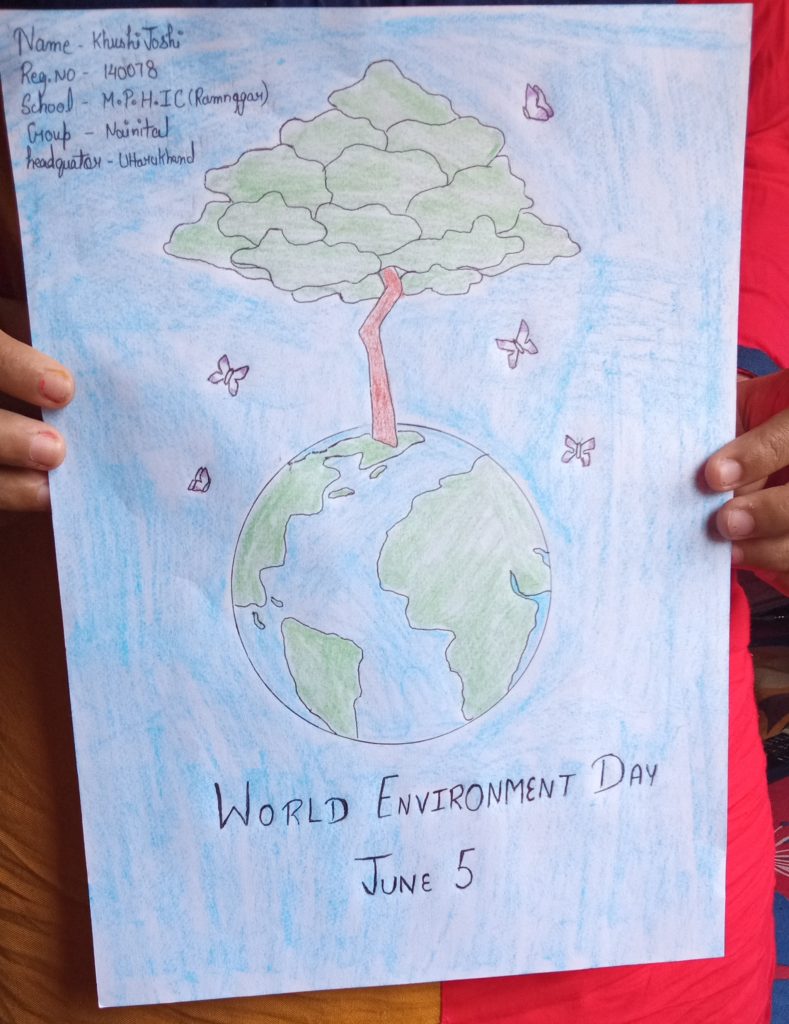 Name - Khushi Joshi
Reg.No - 140078
School - M.P.H.IC (Ramnagar)
Group - Nainital
headquater - Uttarukhand
WORLD ENVIRONMENT DAY
JUNE 5